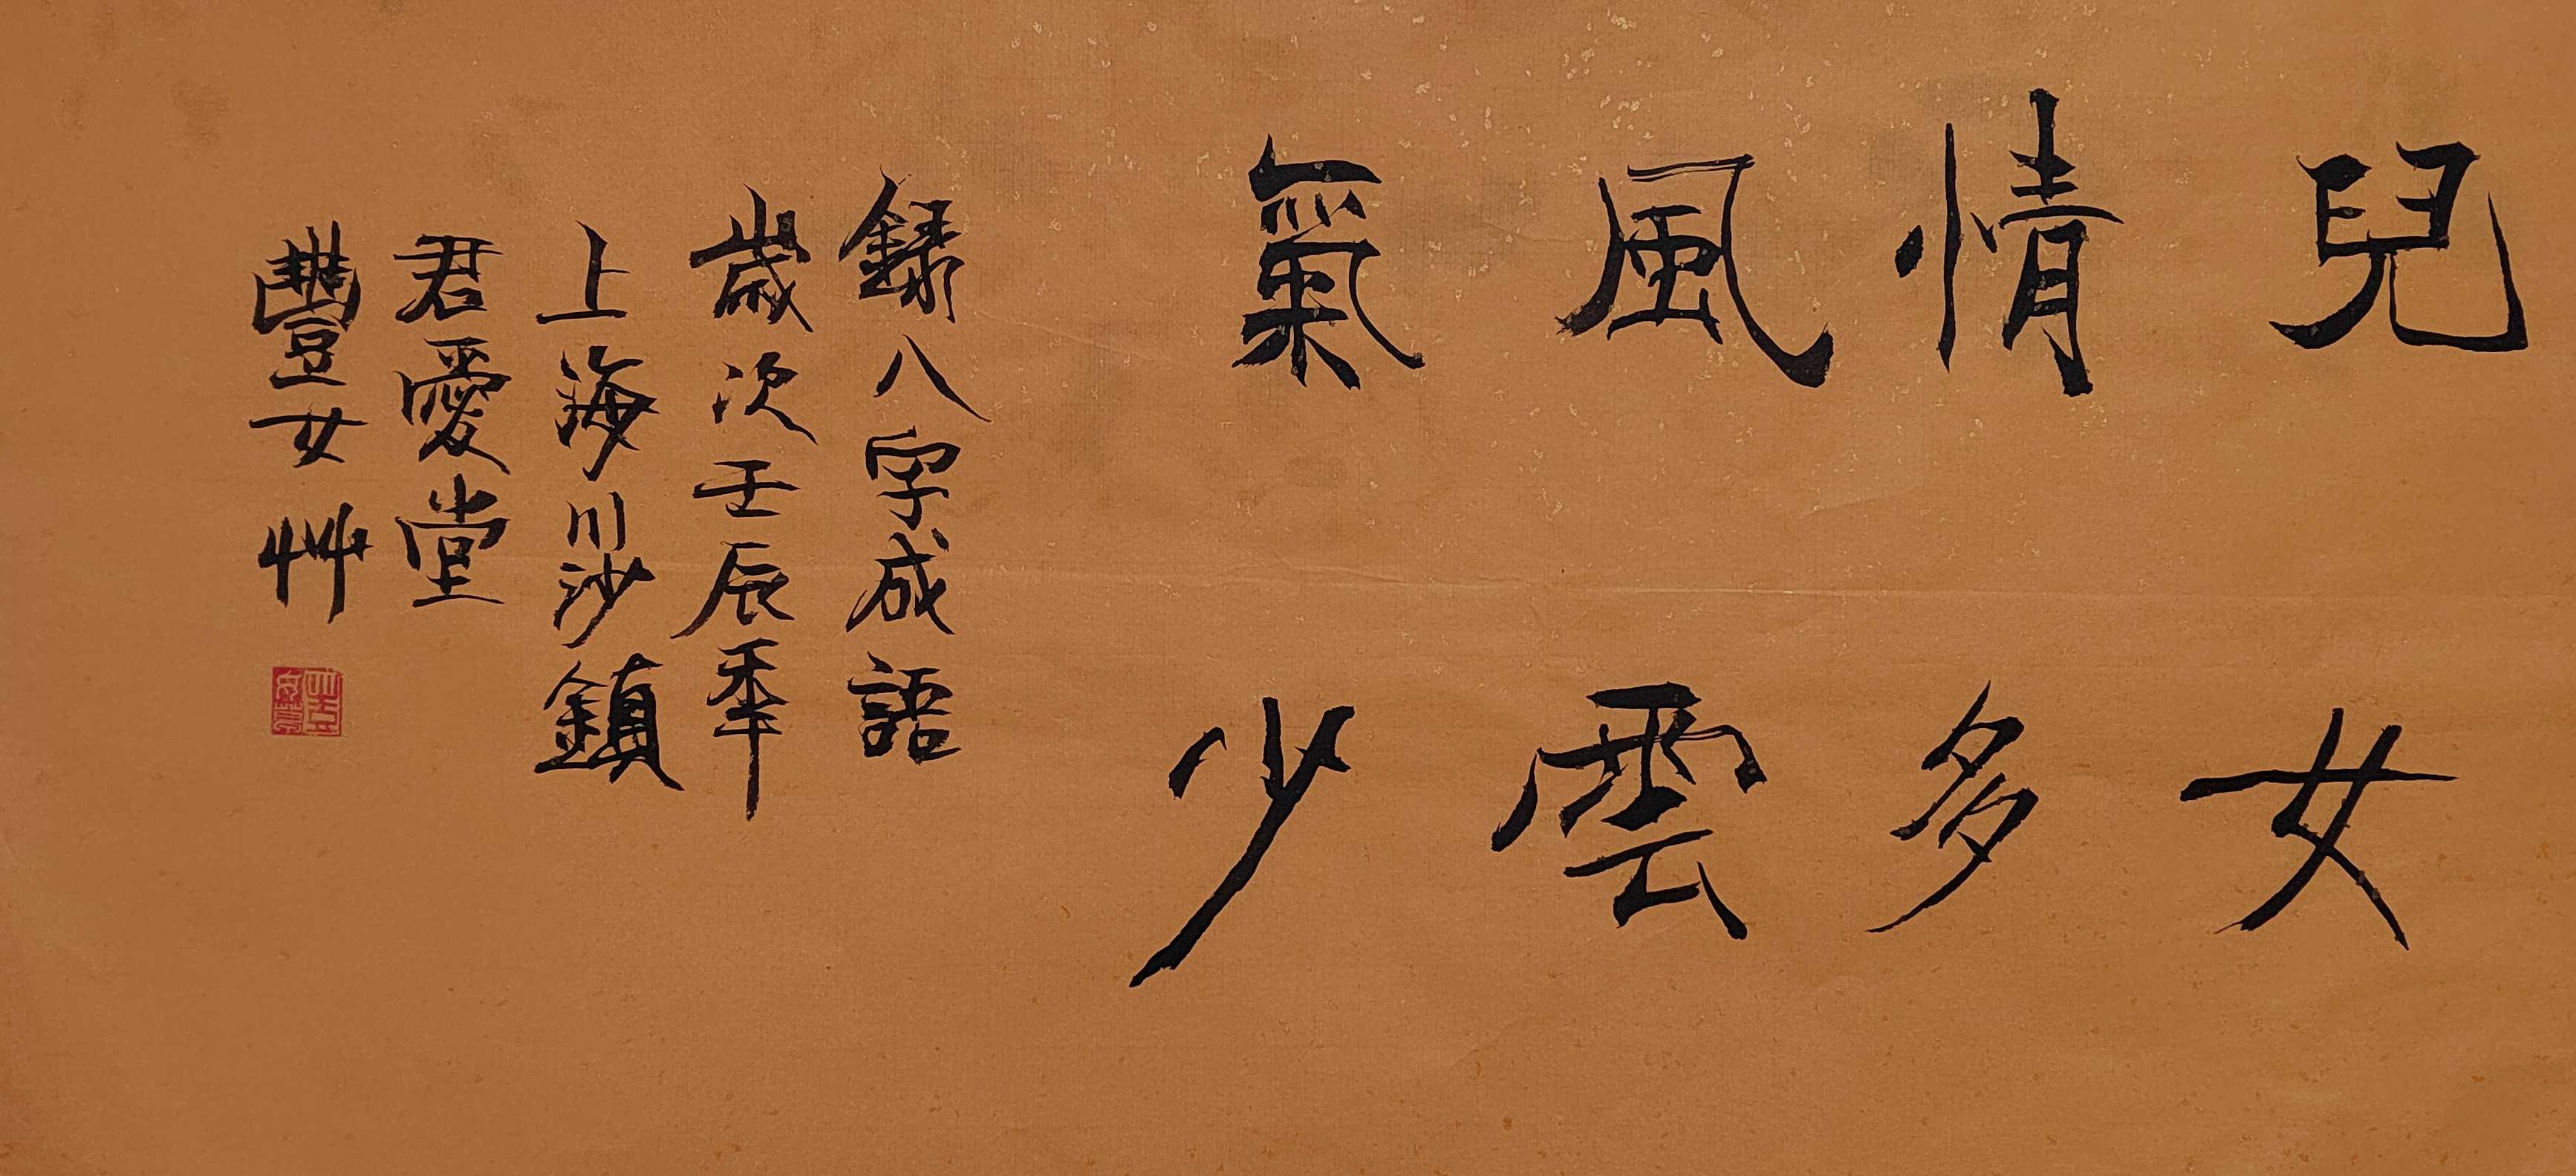 兒女
情多
風雲
氣少
録八字成語
歲次壬辰秊
上海川沙鎮
君愛堂
豐女艸